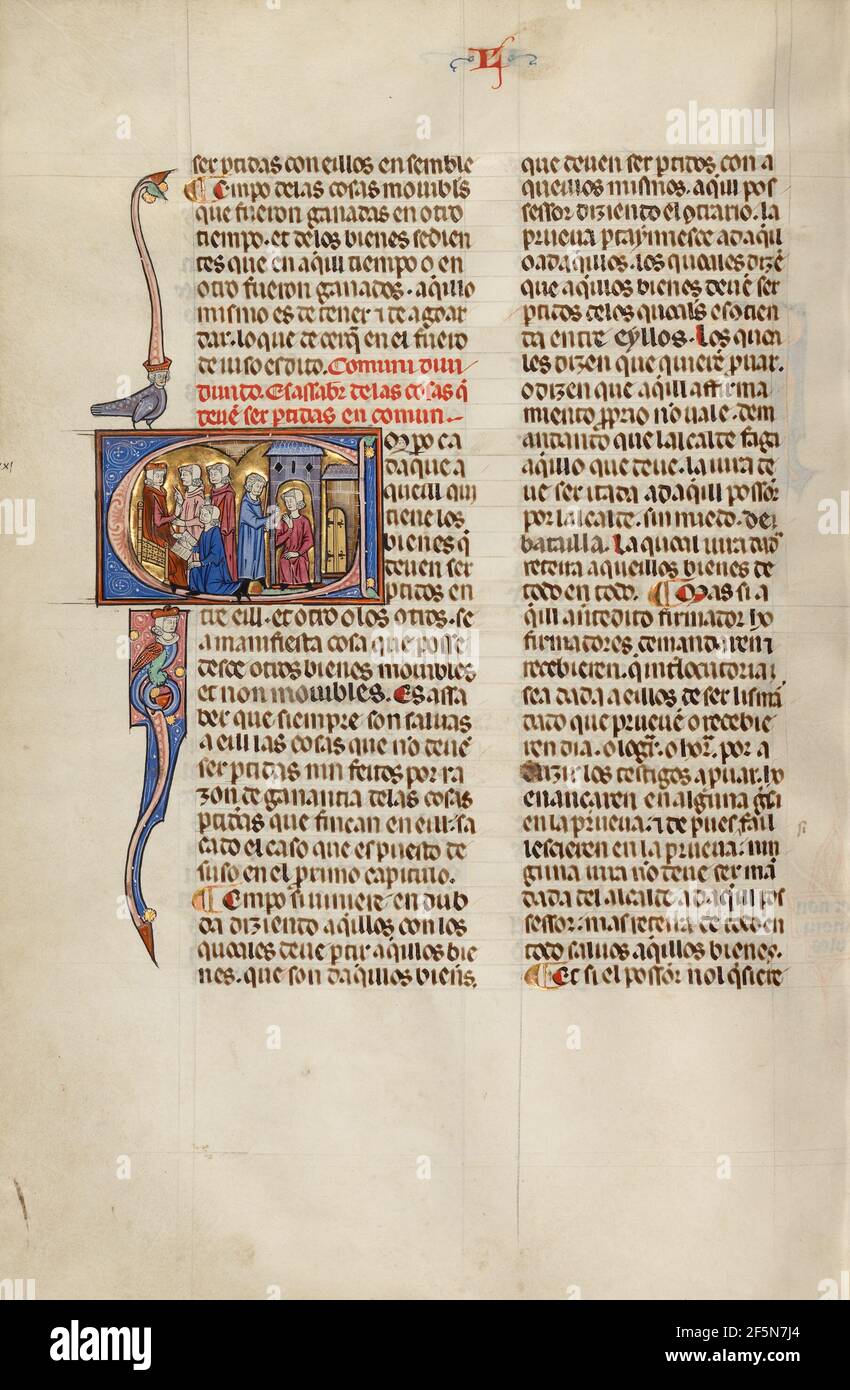 L
ser ptidas con eillos en semble
¶ Empo delas cosas mouibls
que fueron ganadas en otro
tiempo. et de los bienes sedien
tes que en aqui tiempo o en
otro fueron ganados. aqillo
mismo es de tener ⁊ de agoar
dar. lo que de cerq en el fuero
de iuso es dito. Comuni diui
diundo. Es assabr de las cosas q̄
deuē ser ptidas en comun.
Mpo ca
da que a
queill qui
tiene los
bienes q̄
deuen ser
ptidos en
tre eill. et otro o los otros. se
a manifiesta cosa que posse
desce otros bienes mouibles
et non mouibles. Es assa
ber que siempre son saluas
a eill las cosas que nō deuē
ser ptidas nin feitos por ra
zon de ganantia delas cosas
ptidas que fincan en eill. sa
cado el caso que es puesto de
suso en el primo capitulo.
¶ Empo si uiniere en dub
da diziendo aqillos con los
quoales deue ptir aqillos bie
nes. que son daqillos biens.
que deuen ser ptidos con a
queillos mismos. aqill pos
sessor diziendo el ɔtrario. la
prueua ptaynnesce ad aqill
o ad aqillos. los quoales dizē
que aqillos bienes deuē ser
ptidos delos quoals es otien
da entre eyllos. Los quoa
les dizen que quierē puar.
o dizen que aqill affirma
miento pprio no uale. dem
andando que lalcalde faga
aqillo que deue. la iura de
ue ser itada ad aqill possor
por lalcalde. sin miedo. dei
batailla. La quoal iura dad
reterra aqueillos bienes de
todo en todo. ¶ Mas si a
qill antedito firmador ho
firmadores demandaren ⁊
recebieren. q inflocutoria i
sea dada a eillos de ser lismā
dado que prueuē o recebie
ren dia. o logr. o hor. por a
duzir los testigos a puar. ho
enancaren en alguna gsi
en la prueua. ⁊ de pues fail
lescieren en la prueua. nin
guna iura nō deue ser mā
dada del alcalde ad aqill pos
sessor. mas reterra de todo en
todo saluos aqillos bienes.
¶ Et si el possor nol qsiere
alamy
Image ID: 2F5N7J4
www.alamy.com